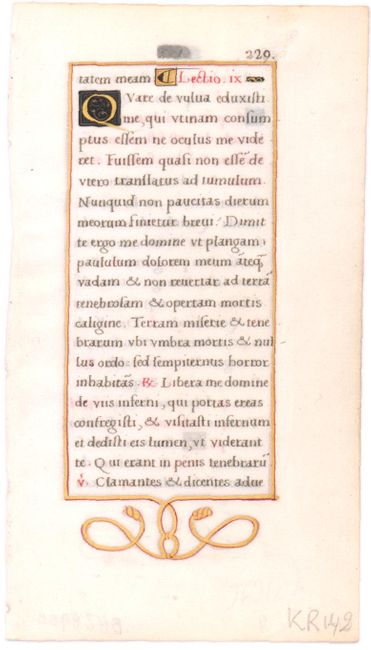 229.
tatem meam Lectio. ix
QVare de vulua eduxisti
me, qui vtinam consum
ptus essem ne oculus me vide
ret. Fuissem quasi non essē de
vtero translatus ad tumulum.
Nunquid non paucitas dierum
meorum finietur breui. Dimit
te ergo me domine vt plangam
paululum dolorem meum āteq̄
vadam & non reuertar ad terrā
tenebrosam & opertam mortis
caligine. Terram miserie & tene
brarum vbi vmbra mortis & nul
lus ordo: sed sempiternus horror
inhabitās. ℟. Libera me domine
de viis inferni, qui portas ereas
confregisti, & visitasti infernum
et dedisti eis lumen, vt viderant
te. Qui erant in penis tenebrarū
v. Clamantes & dicentes adue
KR 142